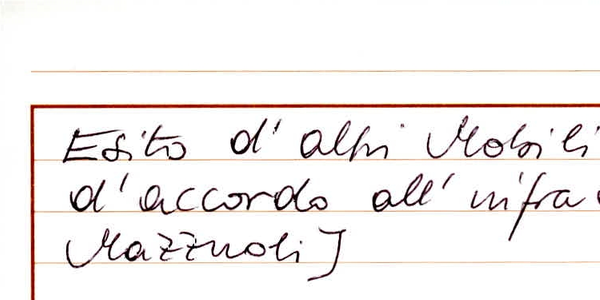 Esito d'altri Mobili
d'accordo all' infra
Mazzuoli]